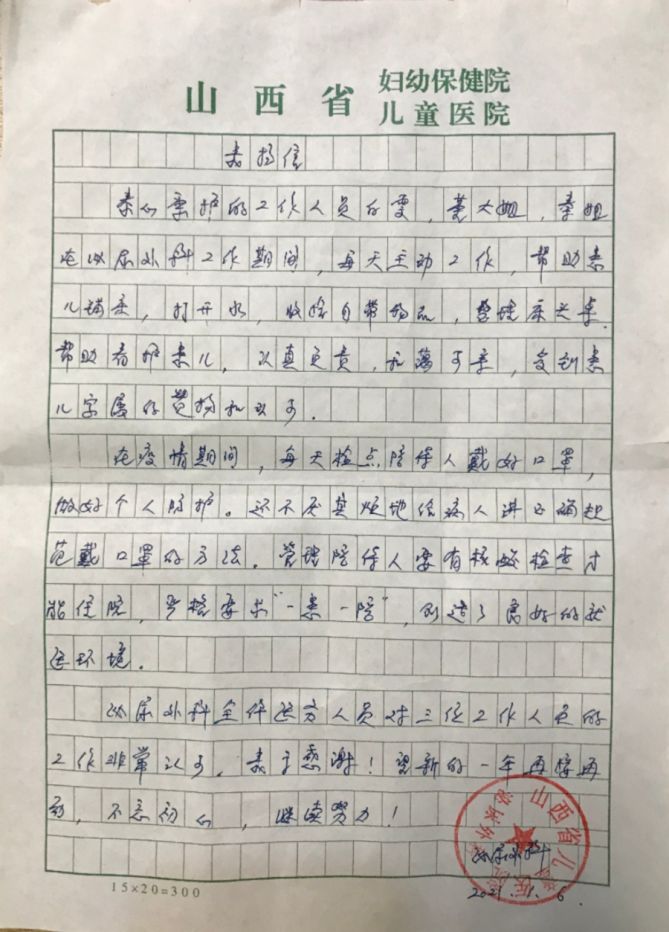 山西省 妇幼保健院
儿童医院
表扬信
泰心康护的工作人员 ，黄大姐，秦姐
在泌尿外科工作期间，每天主动工作，帮助患
儿铺床，打开水，收拾自带物品，整理床头桌，
帮助看护患儿，认真负责，和蔼可亲，受到患
儿家属的赞扬和认可.
在疫情期间，每天检点陪侍人戴好口罩，
做好个人防护。还不厌其烦地给病人讲正确规
范戴口罩的方法.管理陪侍人要有核酸检查才
能住院，严格要求"一患一陪"，创造了良好的就
医环境.
泌尿外科全体医务人员对三位工作人员的
工作非常认可，表示感谢！望新的一年再接再
励，不忘初心，继续努力！
山西省儿童医院 泌尿外科
泌尿外科
2021.1.6.
15×20=300